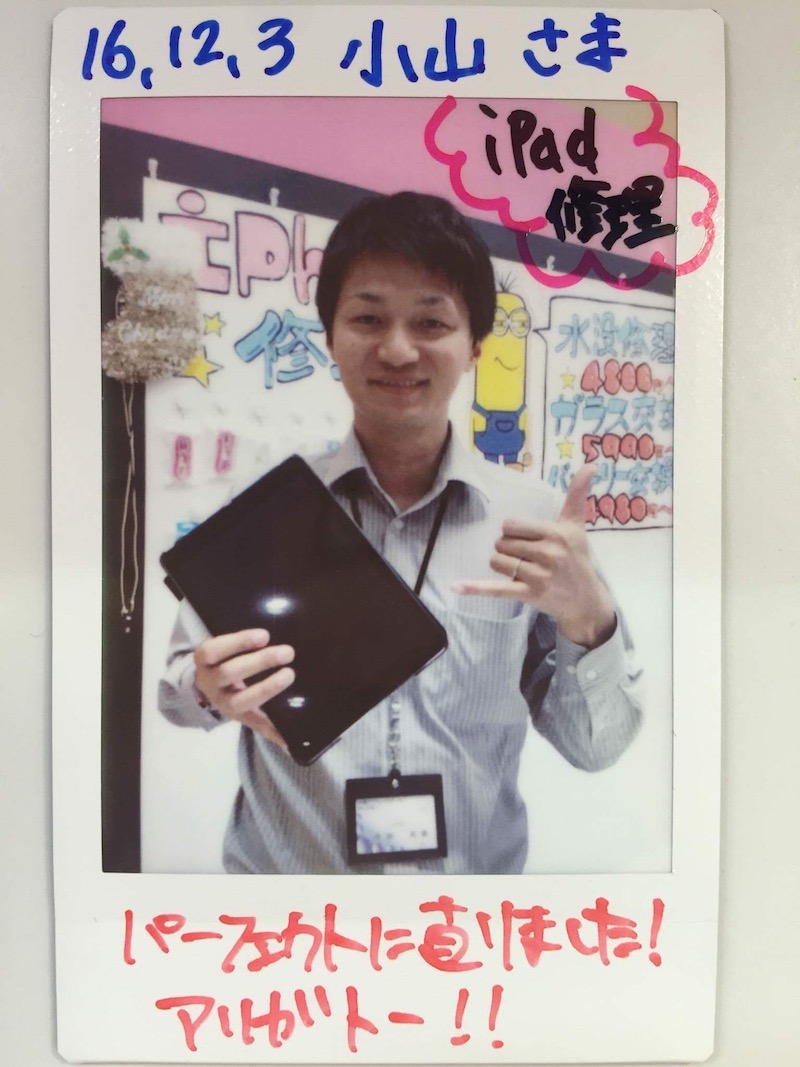 16,12,3 小山 さま
iPad
修理
iPh
修
水没修理
4800
ガラス交
5990
バッテリー交換
4980
パーフェクトに直りました!
アリガトー!!